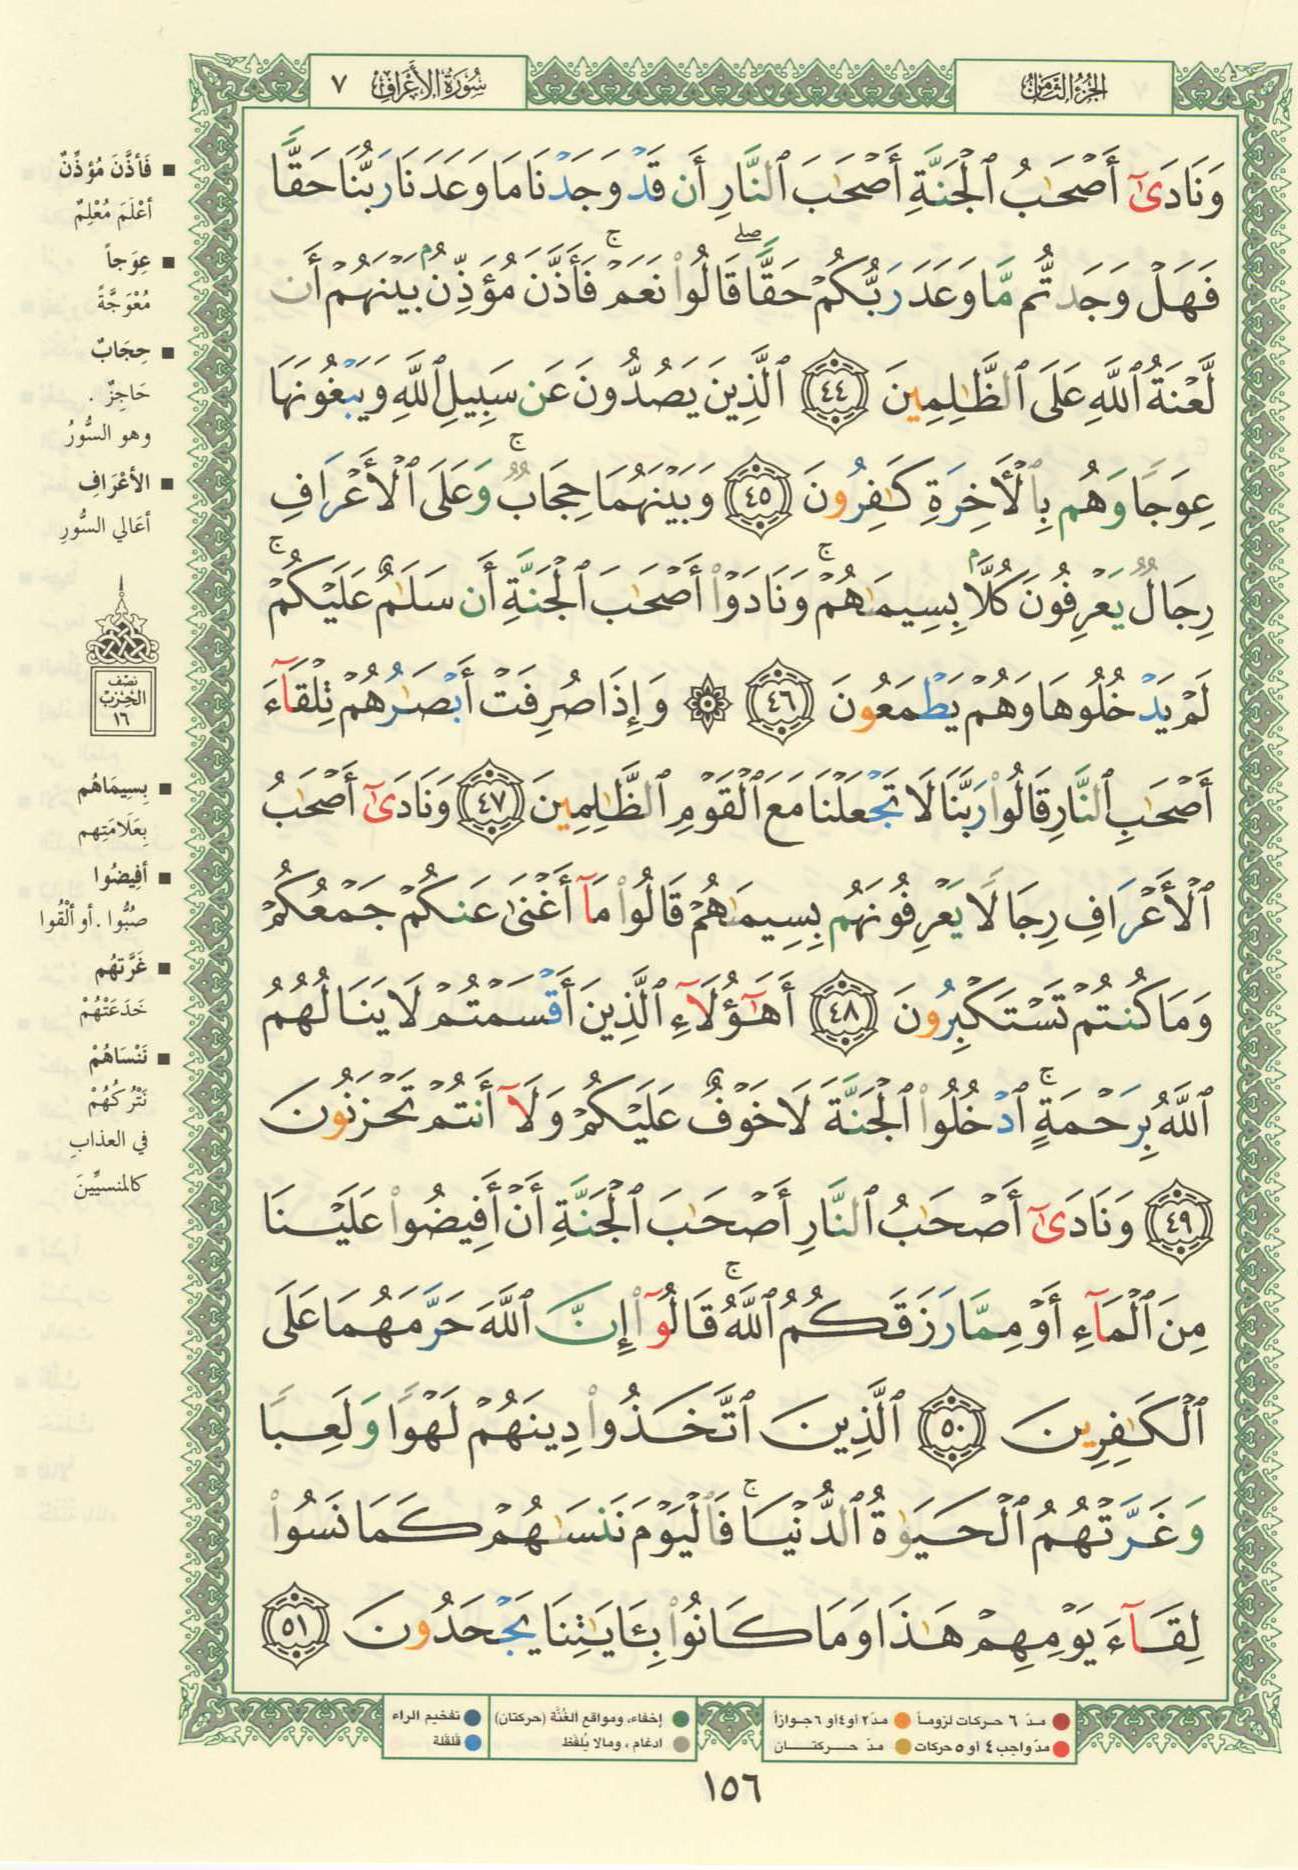 الجزء الثامن
سورة الأعراف ٧
وَنَادَىٰٓ أَصْحَٰبُ ٱلْجَنَّةِ أَصْحَٰبَ ٱلنَّارِ أَن قَدْ وَجَدْنَا مَا وَعَدَنَا رَبُّنَا حَقًّا
فَهَلْ وَجَدتُّم مَّا وَعَدَ رَبُّكُمْ حَقًّا ۖ قَالُوا۟ نَعَمْ ۚ فَأَذَّنَ مُؤَذِّنٌۢ بَيْنَهُمْ أَن
لَّعْنَةُ ٱللَّهِ عَلَى ٱلظَّٰلِمِينَ ٤٤ ٱلَّذِينَ يَصُدُّونَ عَن سَبِيلِ ٱللَّهِ وَيَبْغُونَهَا
عِوَجًا وَهُم بِٱلْأَخِرَةِ كَٰفِرُونَ ٤٥ وَبَيْنَهُمَا حِجَابٌ ۚ وَعَلَى ٱلْأَعْرَافِ
رِجَالٌ يَعْرِفُونَ كُلًّۢا بِسِيمَىٰهُمْ ۚ وَنَادَوْا۟ أَصْحَٰبَ ٱلْجَنَّةِ أَن سَلَٰمٌ عَلَيْكُمْ ۚ
لَمْ يَدْخُلُوهَا وَهُمْ يَطْمَعُونَ ٤٦ ۞ وَإِذَا صُرِفَتْ أَبْصَٰرُهُمْ تِلْقَآءَ
أَصْحَٰبِ ٱلنَّارِ قَالُوا۟ رَبَّنَا لَا تَجْعَلْنَا مَعَ ٱلْقَوْمِ ٱلظَّٰلِمِينَ ٤٧ وَنَادَىٰٓ أَصْحَٰبُ
ٱلْأَعْرَافِ رِجَالًا يَعْرِفُونَهُم بِسِيمَىٰهُمْ قَالُوا۟ مَآ أَغْنَىٰ عَنكُمْ جَمْعُكُمْ
وَمَا كُنتُمْ تَسْتَكْبِرُونَ ٤٨ أَهَٰٓؤُلَآءِ ٱلَّذِينَ أَقْسَمْتُمْ لَا يَنَالُهُمُ
ٱللَّهُ بِرَحْمَةٍ ۚ ٱدْخُلُوا۟ ٱلْجَنَّةَ لَا خَوْفٌ عَلَيْكُمْ وَلَآ أَنتُمْ تَحْزَنُونَ
٤٩ وَنَادَىٰٓ أَصْحَٰبُ ٱلنَّارِ أَصْحَٰبَ ٱلْجَنَّةِ أَنْ أَفِيضُوا۟ عَلَيْنَا
مِنَ ٱلْمَآءِ أَوْ مِمَّا رَزَقَكُمُ ٱللَّهُ ۚ قَالُوٓا۟ إِنَّ ٱللَّهَ حَرَّمَهُمَا عَلَى
ٱلْكَٰفِرِينَ ٥٠ ٱلَّذِينَ ٱتَّخَذُوا۟ دِينَهُمْ لَهْوًا وَلَعِبًا
وَغَرَّتْهُمُ ٱلْحَيَوٰةُ ٱلدُّنْيَا ۚ فَٱلْيَوْمَ نَنسَىٰهُمْ كَمَا نَسُوا۟
لِقَآءَ يَوْمِهِمْ هَٰذَا وَمَا كَانُوا۟ بِـَٔايَٰتِنَا يَجْحَدُونَ ٥١
■ فَأذَّنَ مُؤذِّنٌ
أعْلَمَ مُعْلِمٌ
■ عِوَجاً
مُعْوَجَّةً
■ حِجَابٌ
حَاجِزٌ .
وهو السُّورُ
■ الأعْرَافِ
أعَالي السُّورِ
نصف
الحزب
١٦
■ بِسِيمَاهُم
بِعَلَامَتِهم
■ أفِيضُوا
صُبُّوا . أو ألْقُوا
■ غَرَّتهُم
خَدَعَتْهُمْ
■ نَنْسَاهُمْ
نَتْرُكُهُمْ
في العذابِ
كالمنسيِّينَ
مدّ ٦ حركات لزوماً ● مدّ ٢ أو ٤ أو ٦ جوازاً
مدّ واجب ٤ أو ٥ حركات ● مدّ حركتان
إخفاء، ومواقع الغُنَّة (حركتان)
ادغام ، ومالا يُلفَظ
تفخيم الراء
قلقلة
١٥٦